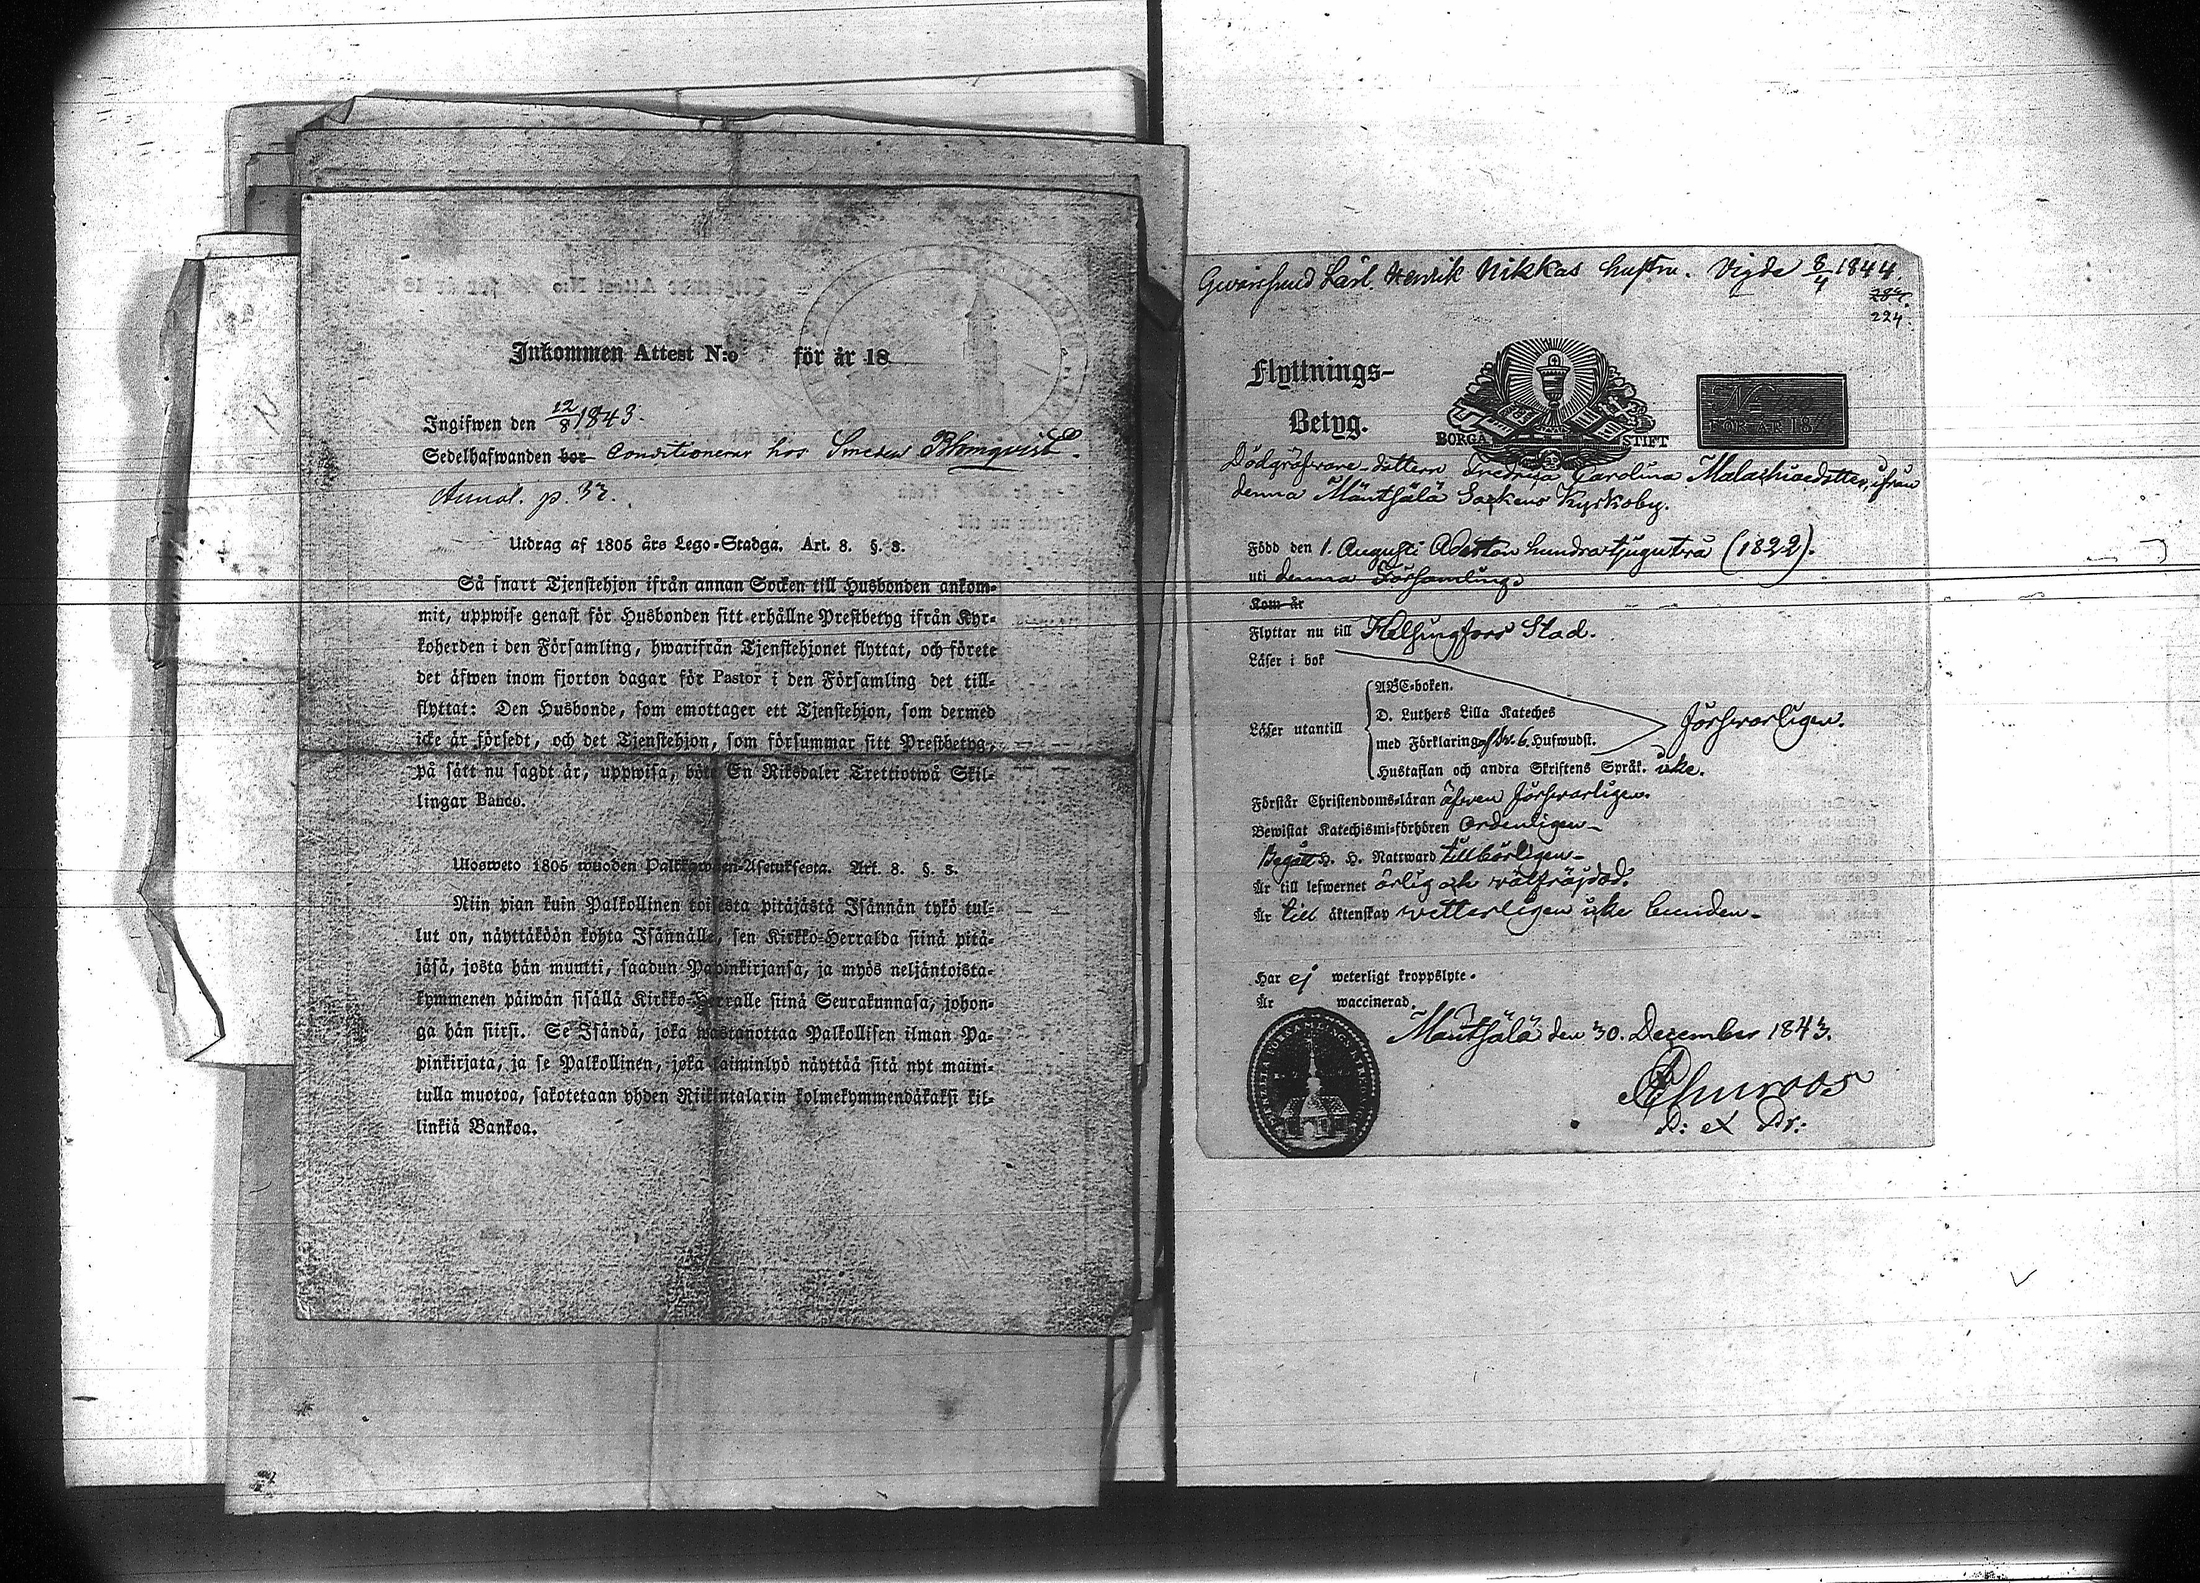 Inkommen Attest N:o för år 18
Ingifwen den 12/8 1843.
Sedelhafwanden bor Conditionerar hos Smeden Blomqvist.
Annot. p. 37.
Utdrag af 1805 års Lego-Stadga. Art. 8. §. 3.
Så snart Tjenstehjon ifrån annan Socken till Husbonden ankom-
mit, uppwise genast för Husbonden sitt erhållne Prestbetyg ifrån Kyr-
koherden i den Församling, hwarifrån Tjenstehjonet flyttat, och förete
det äfwen inom fjorton dagar för Pastor i den Församling det till-
flyttat: Den Husbonde, som emottager ett Tjenstehjon, som dermed
icke är försedt, och det Tjenstehjon, som försummar sitt Prestbetyg,
på sätt nu sagdt är, uppwisa, böte En Riksdaler Trettiotwå Skil-
lingar Banco.
Ulosweto 1805 wuoden Palkkawäen-Asetuksesta. Art. 8. §. 3.
Niin pian kuin Palkollinen toisesta pitäjästä Isännän tykö tul-
lut on, näyttäköön kohta Isännälle, sen Kirkko-Herralda siinä pitä-
jäsä, josta hän muutti, saadun Papinkirjansa, ja myös neljäntoista-
kymmenen päiwän sisällä Kirkko-Herralle siinä Seurakunnasa, johon-
ga hän siirsi. Se Isändä, joka wastanottaa Palkollisen ilman Pa-
pinkirjata, ja se Palkollinen, joka laiminlyö näyttää sitä nyt maini-
tulla muotoa, sakotetaan yhden Riikintalarin kolmekymmendäkaksi kil-
linkiä Bankoa.
Henrik Nikkas hustru. Vigde 8/4 1844.
224.
Flyttnings-
Betyg.
BORGÅ STIFT
FÖR ÅR 18
Dödgräfware-dottern Fredrica Carolina Malachiaedotter, ifrån
denna Mäntsälä Sockens Kyrkoby.
Född den 1. Augusti Aderton hundratjugutvå (1822).
uti denna Församling.
Kom år
Flyttar nu till Helsingfors Stad.
Läser i bok
ABC-boken.
D. Luthers Lilla Kateches
Läser utantill
med Förklaring 6. Hufwudst. försvarligen.
Hustaflan och andra Skriftens Språk. icke.
Förstår Christendoms-läran äfwen försvarligen.
Bewistat Katechismi-förhören Ordenligen
Begått H. H. Nattward tillbörligen
Är till lefwernet ärlig och välfräjdad.
Är till äktenskap vetterligen icke bunden.
Har ej weterligt kroppslyte.
Är waccinerad.
Mäntsälä den 30. December 1843.